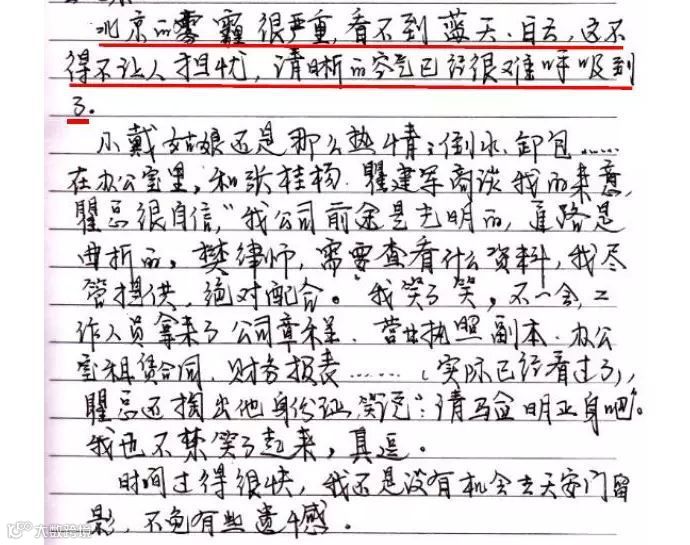 北京的雾霾很严重,看不到蓝天、白云,这不
得不让人担忧,清晰的空气已经很难呼吸到
了.
小戴姑娘还是那么热情:倒水、卸包……
在办公室里,和张桂杨、瞿建军商谈我的来意,
瞿总很自信,"我公司前途是光明的,道路是
曲折的。樊律师,需要查看什么资料,我尽
管提供,绝对配合。"我笑了笑,不一会,工
作人员拿来了公司章程、营业执照副本、办公
室租赁合同、财务报表……(实际已经看过了),
瞿总还掏出他身份证笑说":请马金明正身吧"。
我也不禁笑了起来,真逗。
时间过得很快,我还是没有机会去天安门留
影,不免有些遗憾。
大数跨境